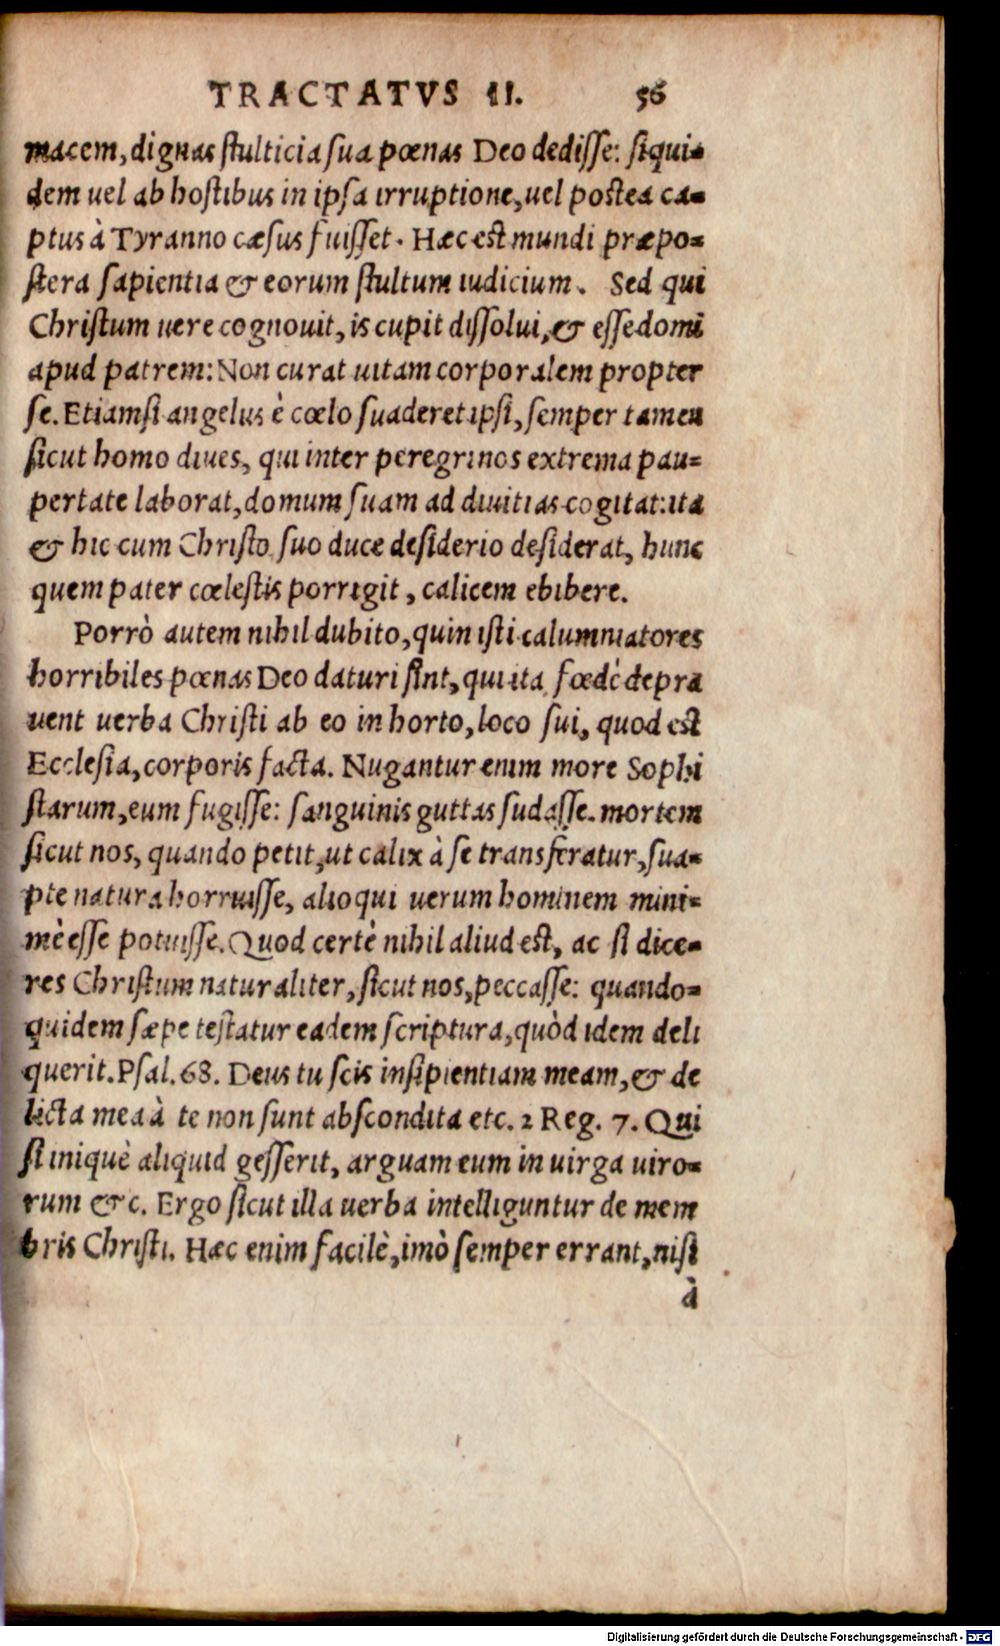 TRACTATVS II. 56
macem, dignas stulticia sua pœnas Deo dedisse: siqui-
dem uel ab hostibus in ipsa irruptione, uel postea ca-
ptus à Tyranno cæsus fuisset. Hæc est mundi præpo-
stera sapientia & eorum stultum iudicium. Sed qui
Christum uere cognouit, is cupit dissolui, & esse domi
apud patrem: Non curat uitam corporalem propter
se. Etiamsi angelus è cœlo suaderet ipsi, semper tamen
sicut homo diues, qui inter peregrinos extrema pau-
pertate laborat, domum suam ad diuitias cogitat: ita
& hic cum Christo suo duce desiderio desiderat, hunc
quem pater cœlestis porrigit, calicem ebibere.
Porrò autem nihil dubito, quin isti calumniatores
horribiles pœnas Deo daturi sint, qui ita fœdè depra
uent uerba Christi ab eo in horto, loco sui, quod est
Ecclesia, corporis facta. Nugantur enim more Sophi
starum, eum fugisse: sanguinis guttas sudasse. mortem
sicut nos, quando petit, ut calix à se transferatur, sua-
pte natura horruisse, alioqui uerum hominem mini-
mè esse potuisse. Quod certè nihil aliud est, ac si dice-
res Christum naturaliter, sicut nos, peccasse: quando-
quidem sæpe testatur eadem scriptura, quòd idem deli
querit. Psal. 68. Deus tu scis insipientiam meam, & de
licta mea à te non sunt abscondita etc. 2 Reg. 7. Qui
si iniquè aliquid gesserit, arguam eum in uirga uiro-
rum &c. Ergo sicut illa uerba intelliguntur de mem
bris Christi. Hæc enim facilè, imò semper errant, nisi
à
Digitalisierung gefördert durch die Deutsche Forschungsgemeinschaft - DFG